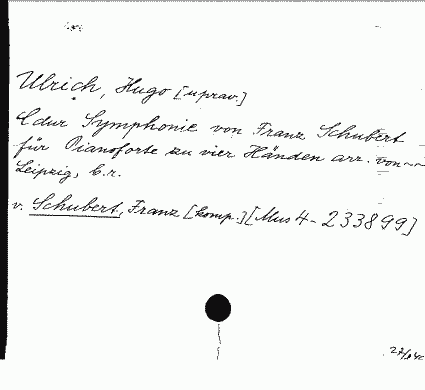 Ulrich, Hugo [uprav.]
C dur Symphonie von Franz Schubert
für Pianoforte zu vier Händen arr. von ~~
Leipzig, b.r.
v. Schubert, Franz [komp.] [Mus 4 - 233899]